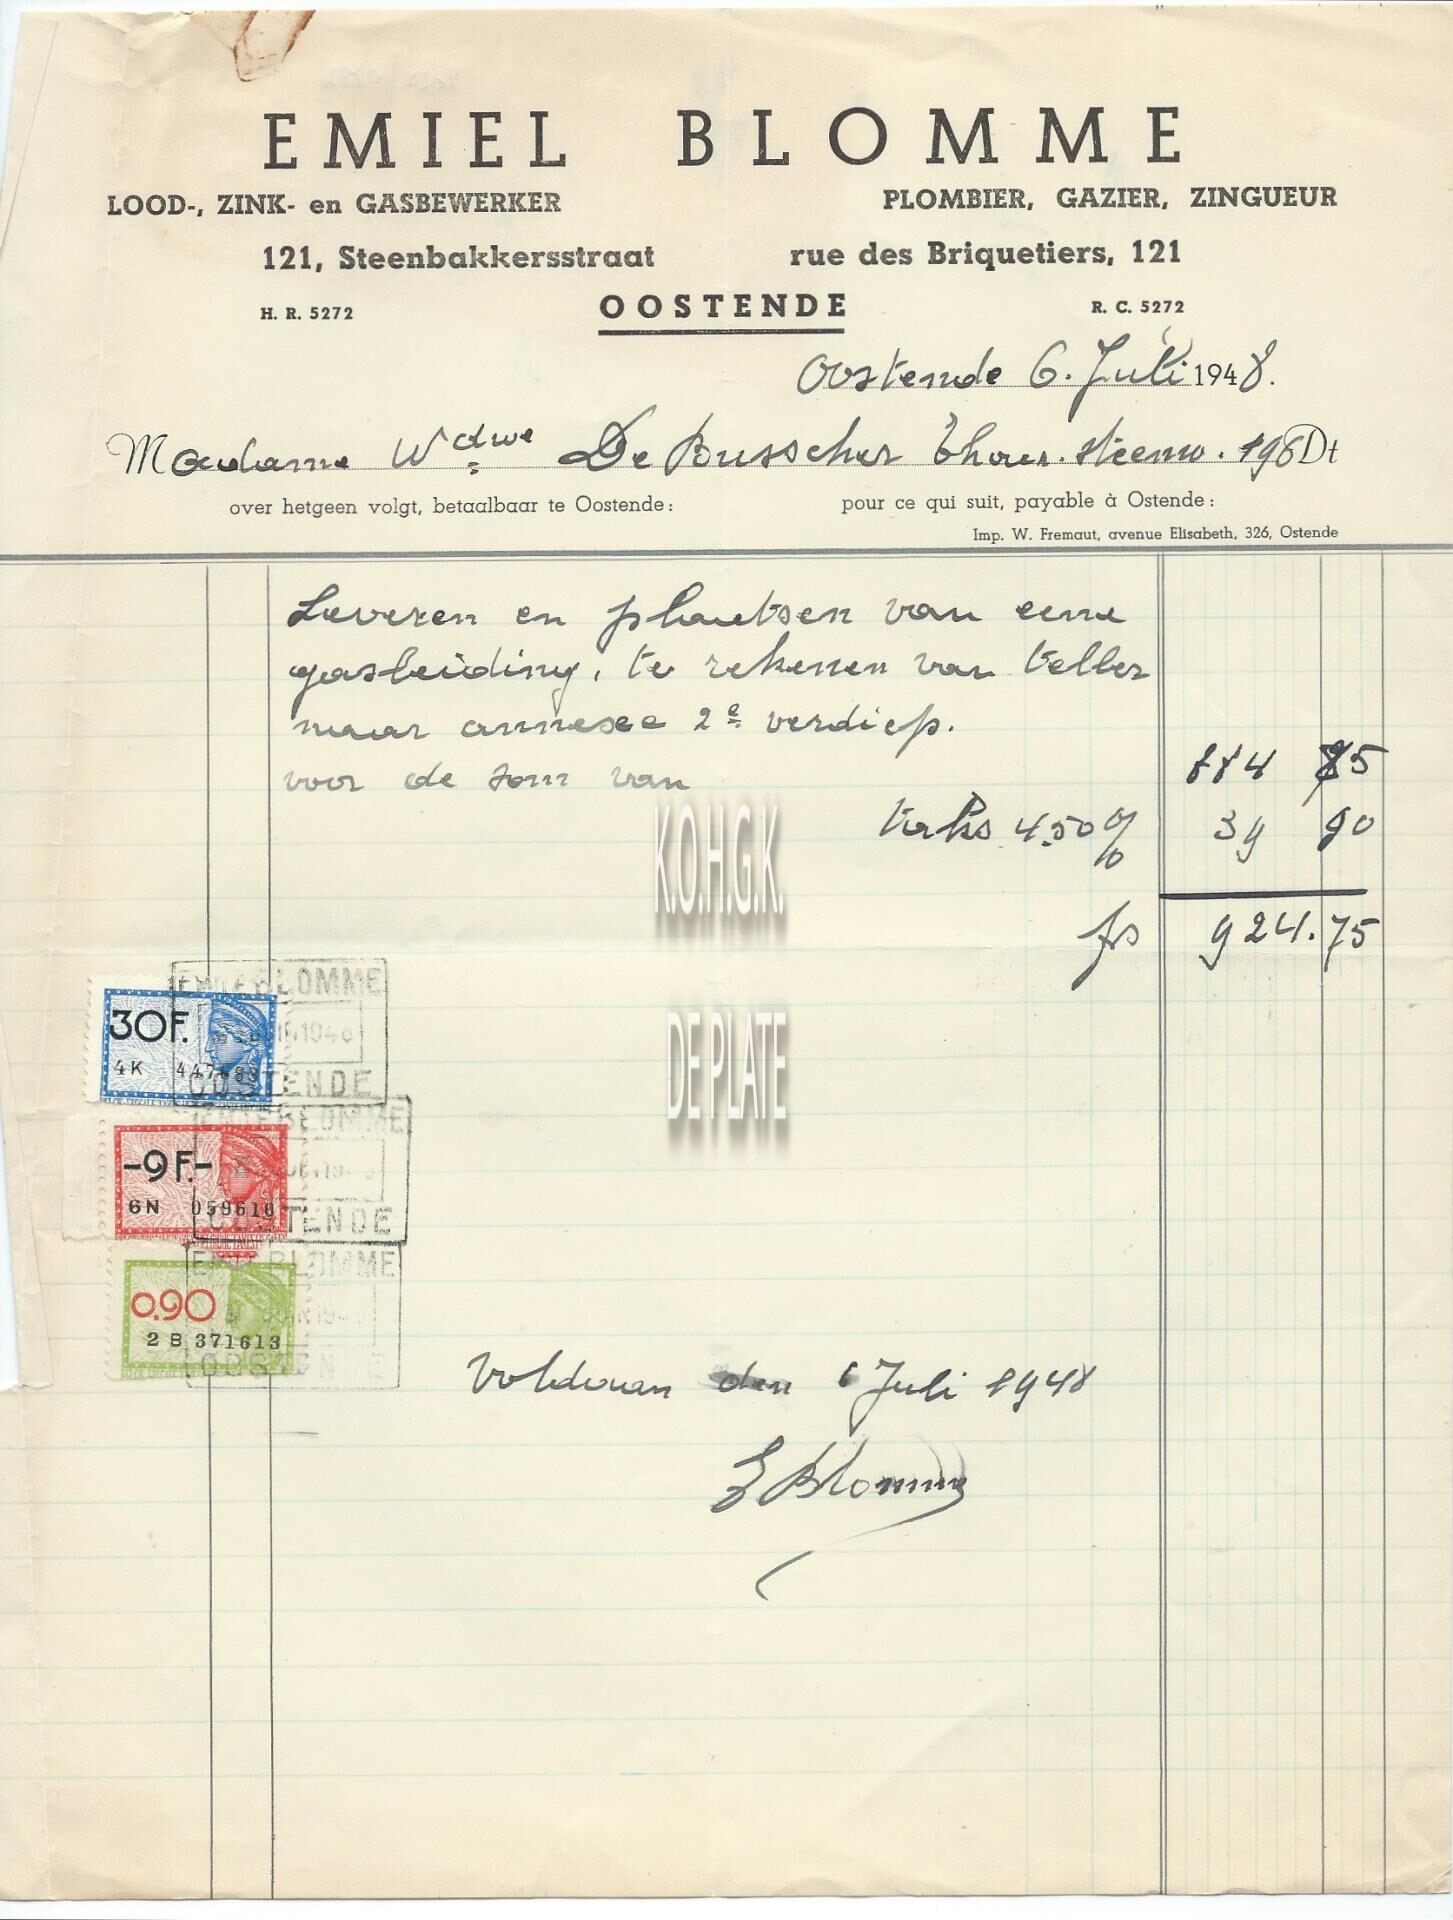 EMIEL BLOMME
LOOD-, ZINK- en GASBEWERKER PLOMBIER, GAZIER, ZINGUEUR
121, Steenbakkersstraat rue des Briquetiers, 121
H. R. 5272 OOSTENDE R. C. 5272
Oostende 6. Juli 1948.
Madame Wdwe De Busscher Thour. steenw. 196 Dt
over hetgeen volgt, betaalbaar te Oostende: pour ce qui suit, payable à Ostende:
Imp. W. Fremaut, avenue Elisabeth, 326, Ostende
Leveren en plaatsen van eene
gasleiding, te rekenen van teller
naar annexe 2e verdiep.
voor de som van 884 85
taks 4.50 % 39 90
frs 924.75
K.O.H.G.K.
DE PLATE
30F.
4K
BLOMME
OOSTENDE
-9F.-
6N 059610
BLOMME
OOSTENDE
0.90
2 B 371613
BLOMME
OOSTENDE
Voldaan den 6 Juli 1948
E Blomme